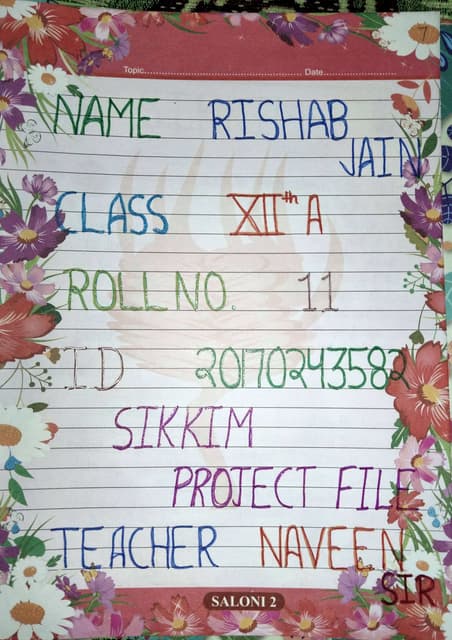 7
Topic........................ Date........................
NAME RISHAB
JAIN
CLASS XIIth A
ROLL NO. 11
ID 20170243582
SIKKIM
PROJECT FILE
TEACHER NAVEEN
SIR
SALONI 2